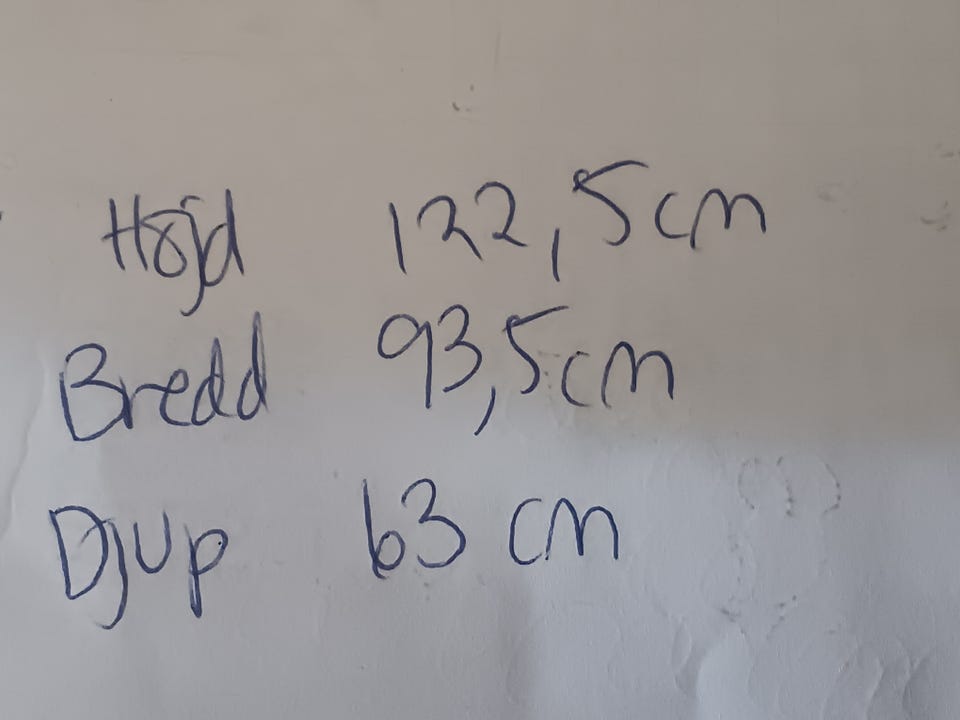 Höjd 122,5cm
Bredd 93,5cm
Djup 63 cm